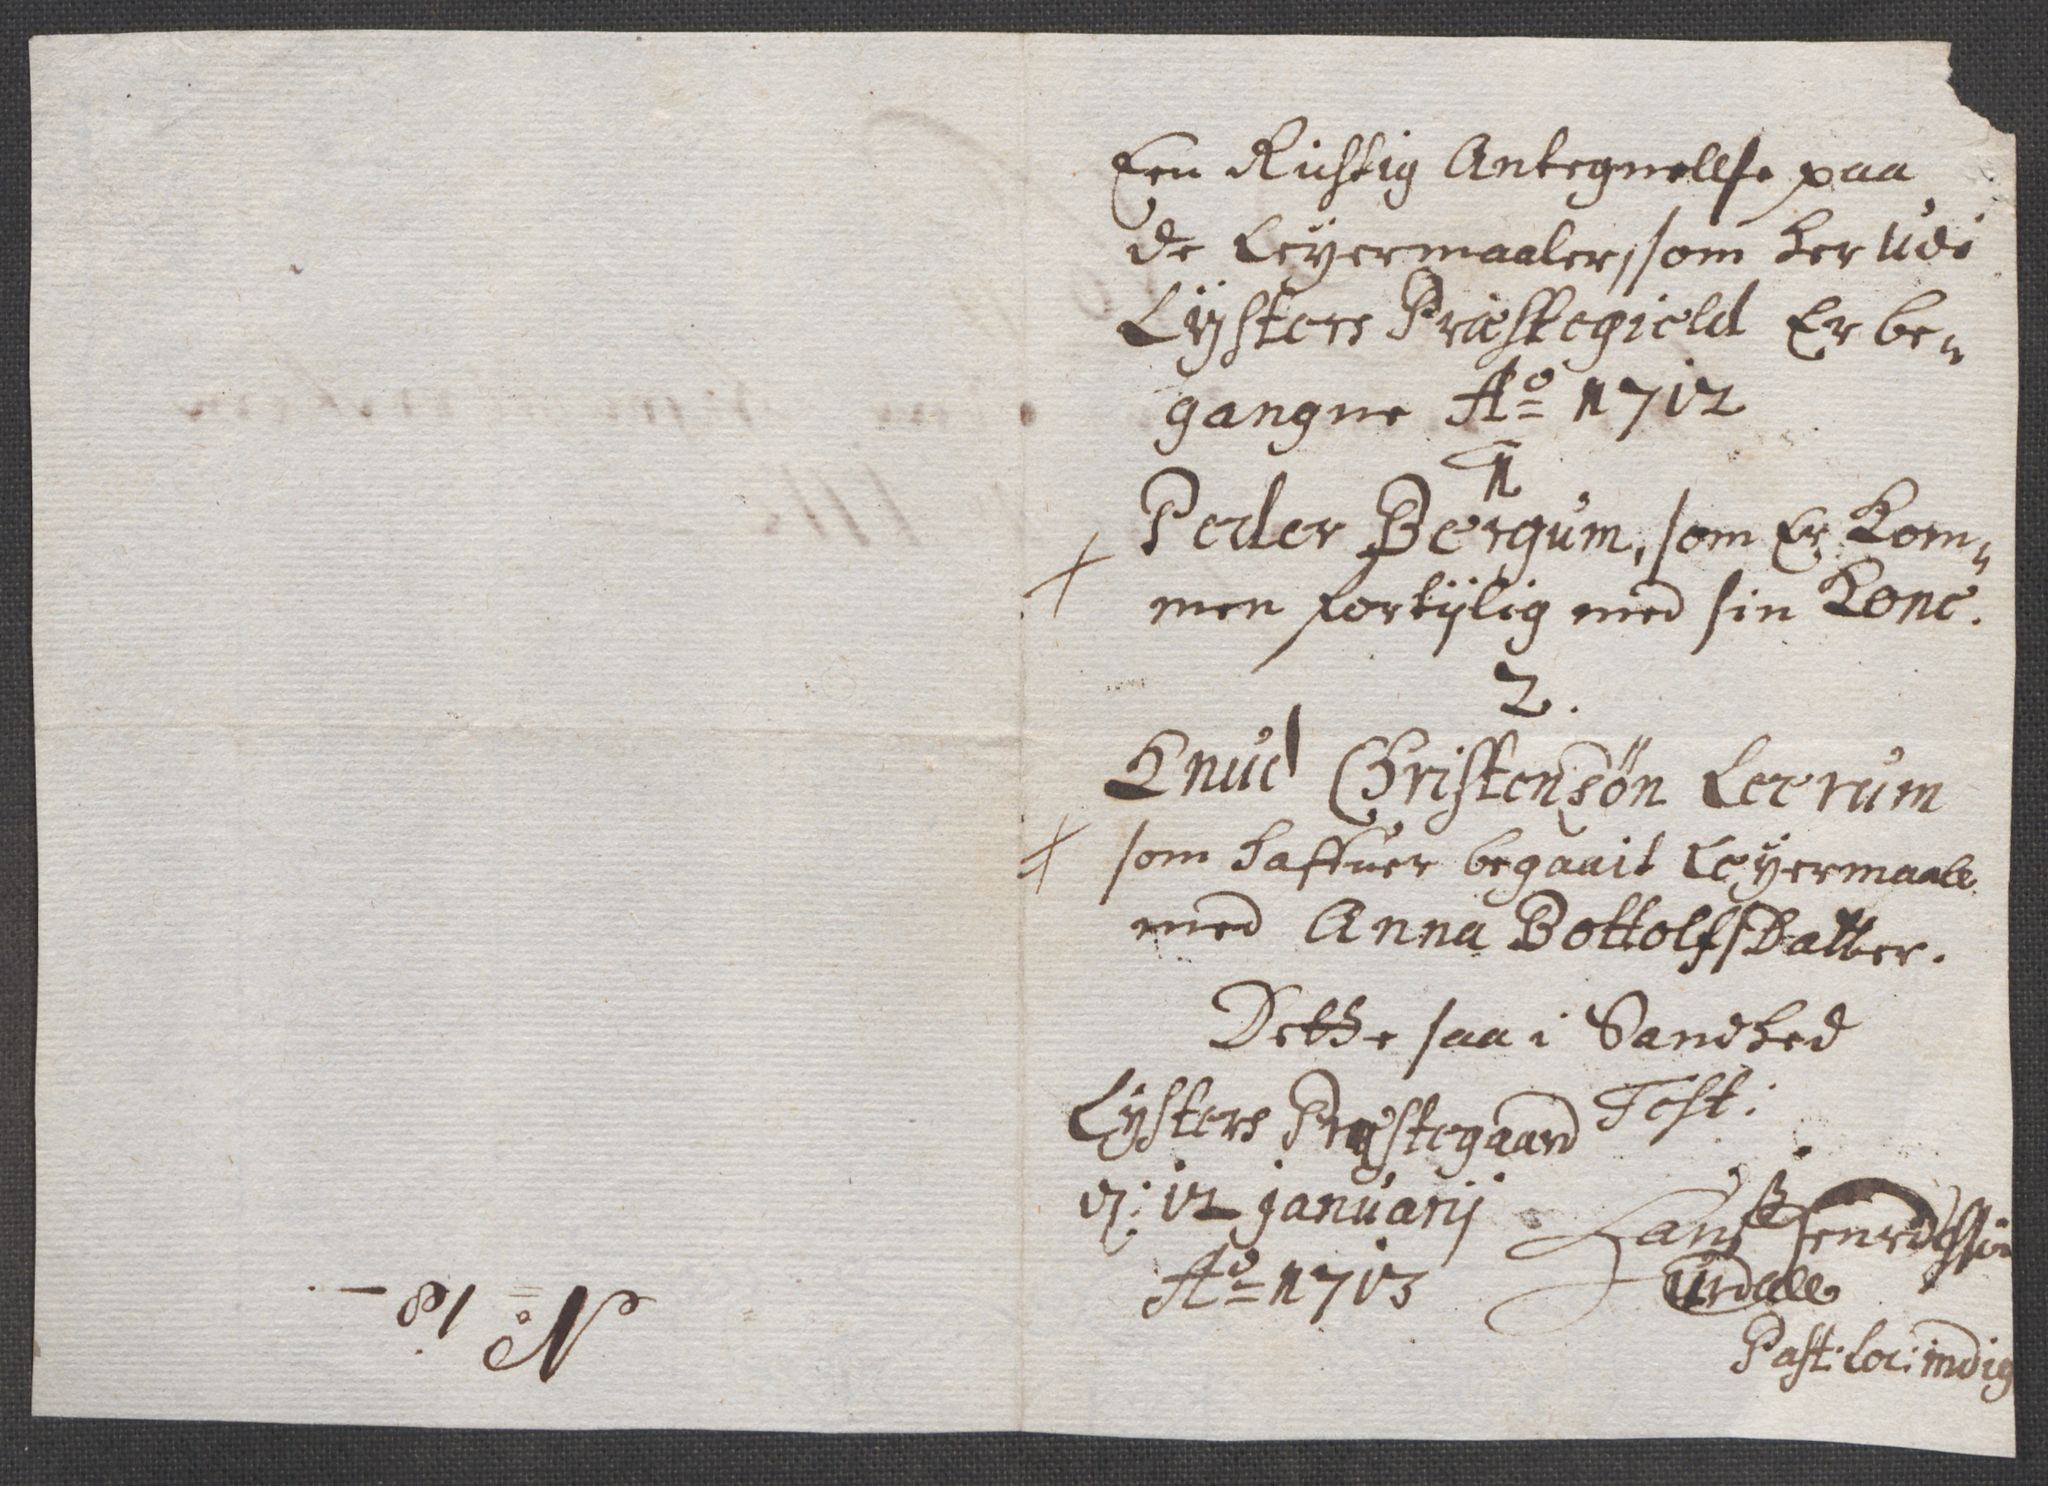 Een Richtig Antegnellse paa
de Leÿermaaler, som her udi
Lÿsters Præstegield Er be„
gangne Aº 1712
1
Peder Bergum, som Er kom„
men fortijlig med sin Kone.
2.
Knud Christensøn Leerum
som haffuer begaait Leÿermaall
med Anna BottolfsDatter.
Dette saa i Sandhed
Lÿsters Præstegaard Test:
d: 12 januarij
Aº 1713
Hendrichssøn
Urdall
Past: loc: indig
Nº 18